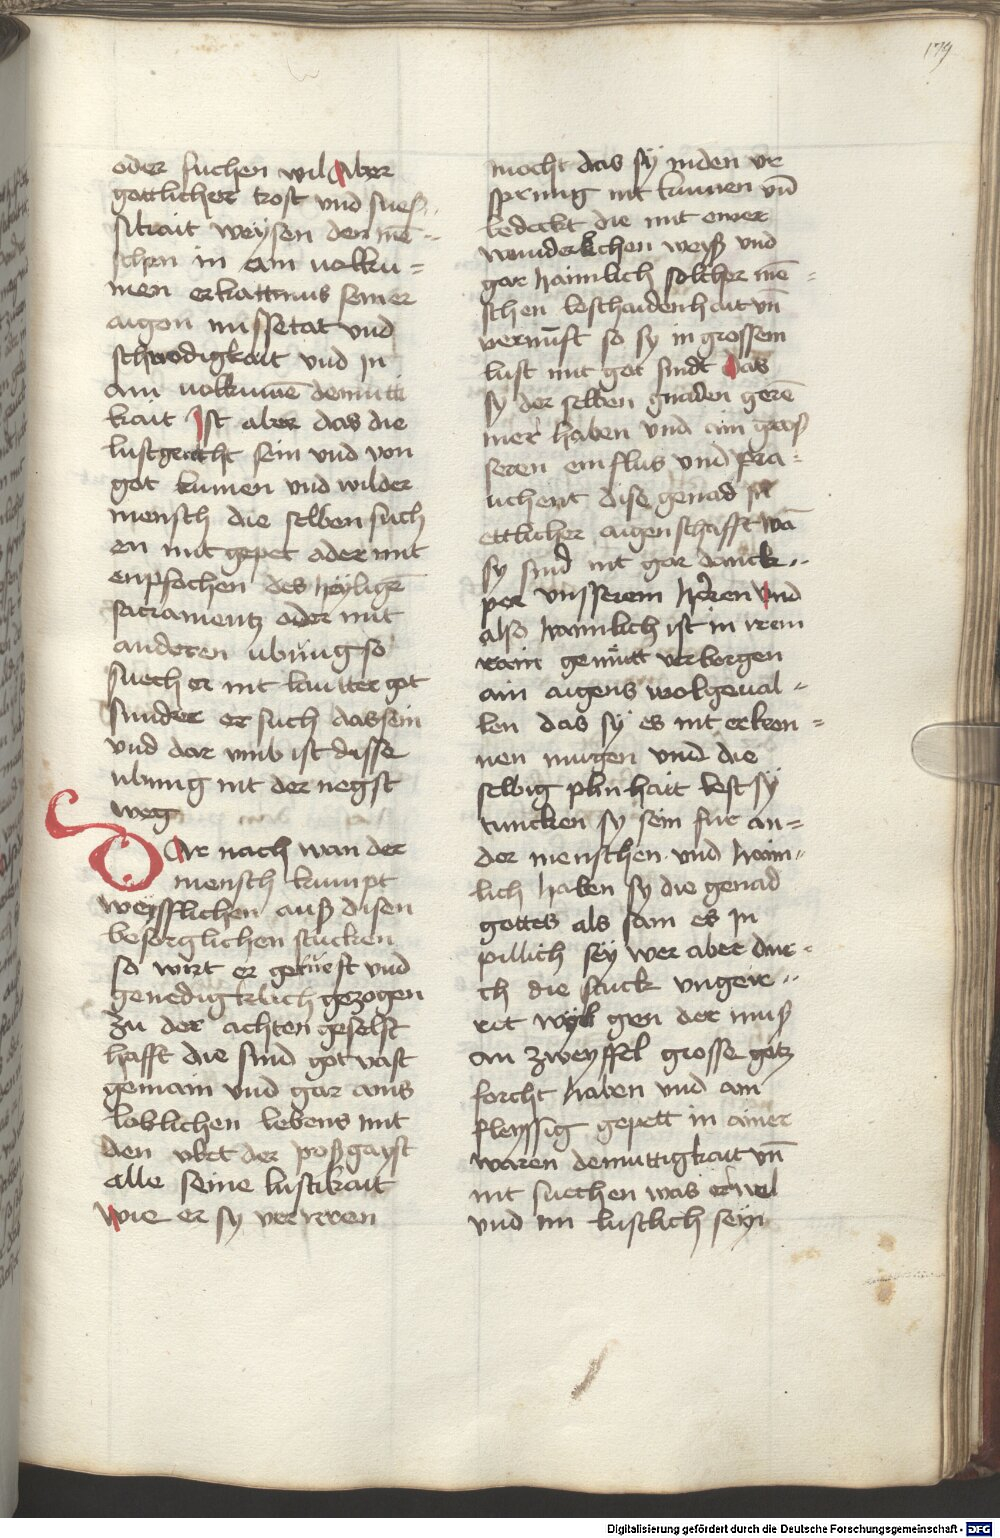 179
oder suchen wil Aber
gottlicher trost vnd sues..
sikait weysen den mē..
schen in ain uolku=
men erkanttnus seiner
aigen missetat vnd
schnodigkait vnd in
ain uolkumē demutti
kait Ist aber das die
lust gerecht sein vnd von
got kumen vnd wil der
mensch die selben such
en mit gepet ader mit
enpfachen des heyligē
sacramentz oder mit
anderen ubung so
suech er nit lautter got
sunder er such das sein
vnd dar vmb ist disse
ubung nit der negst
weg
Dar nach wan der
mensch kumpt
weysslichen auß disen
besorglichen stucken
so wirt er geruest vnd
genedigklich gezogen
zu der achten gesellt
hafft die sind got vast
gemain vnd gar ains
loblichen lebens mit
den vbet der poß gayst
alle seine listikait
wie er sy ver irren
mocht das sy in den vr
sprung nit kumen vn̄
bedeckt die mit einer
wunderlichen weyß vnd
gar haimlich solcher mē=
schen beschaidenhait vn̄
vernūft so sy in grossem
lust mit got sindt Das
sy der selben gnaden gerē
mer haben vnd ain gros
seren einflus vnd pra=
uchent dise genad in
ettlicher aigenschafft wā
sy sind nit gar danck..
per vnsserem herren Vnd
also haimlich ist in irem
rain gemutt verborgen
ain aigens wolgeual=
len das sy es nit erken=
nen mugen vnd die
selbig plinhait lest sy
tuncken sy sein fur an=
der menschen vnd haim=
lich haben sy die genad
gottes als sam es in
pillich sey wer aber dur=
ch die stuck vngeir..
ret wyl gen der muß
an zweyffel grosse gotz
forcht haben vnd ain
fleyssig gepett in ainer
waren demuttigkait vn̄
nit suechen was er wil
vnd im lustlich seyn
Digitalisierung gefördert durch die Deutsche Forschungsgemeinschaft - DFG